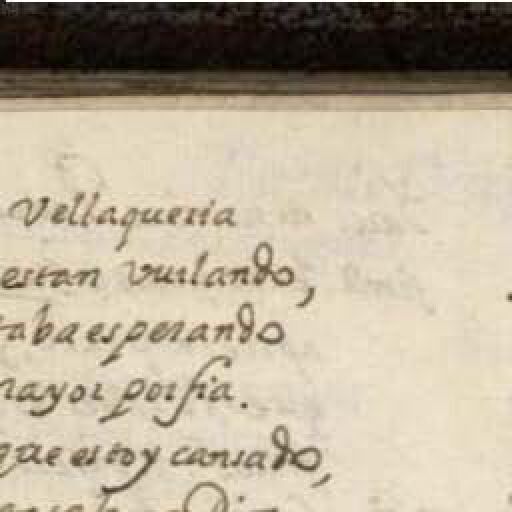 Vellaqueria
estan vurlando,
taba esperando
mayor porfia.
que estoy cansado,